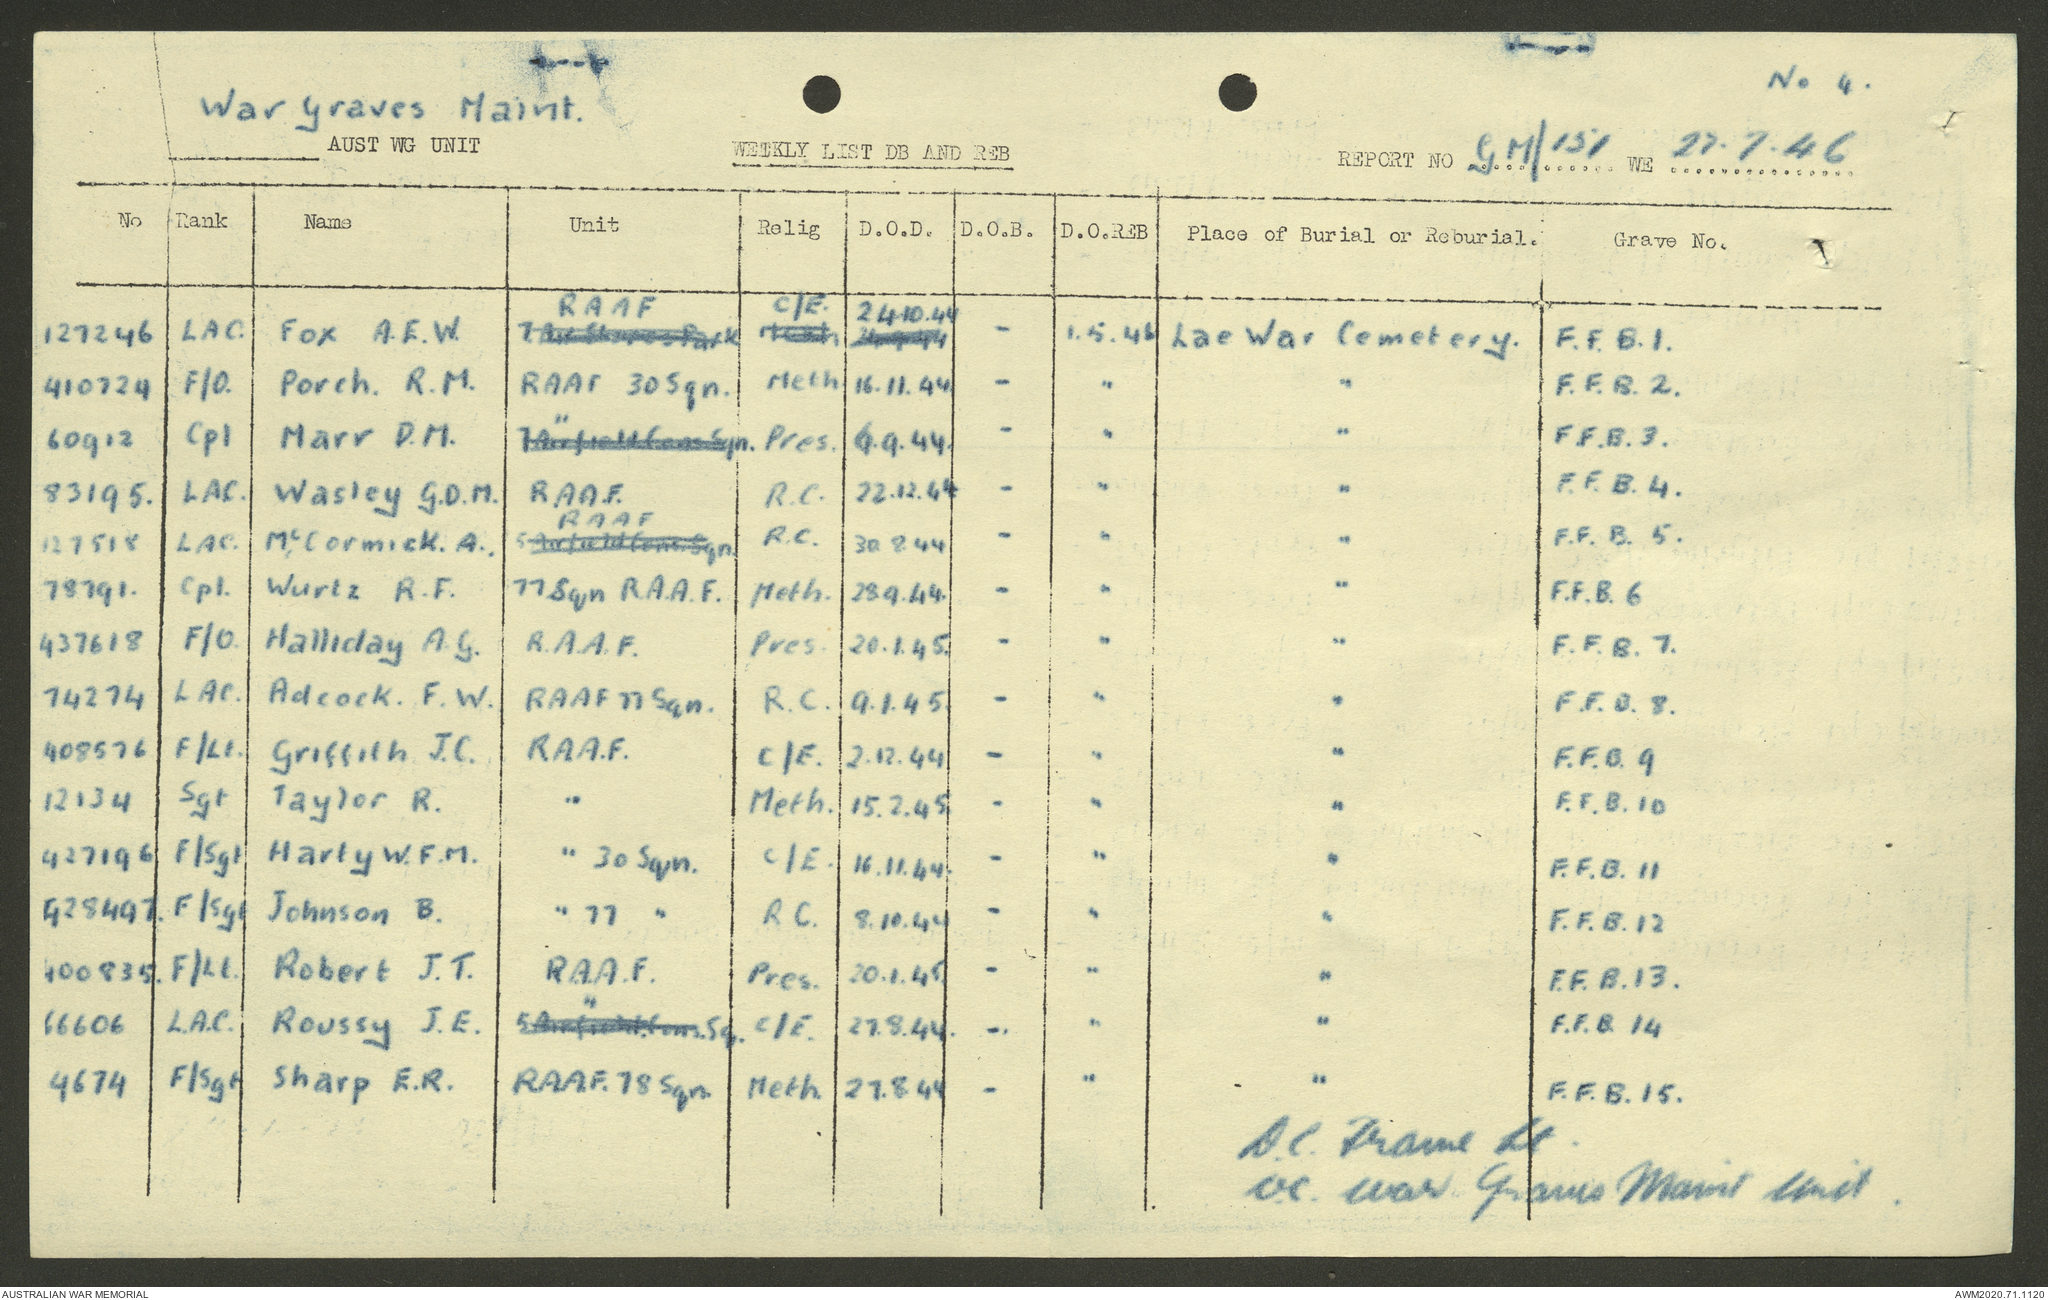 No 4.
War Graves Maint.
AUST WG UNIT WEEKLY LIST DB AND REB REPORT NO GM/151 WE 27.7.46
No Rank Name Unit Relig D.O.D. D.O.B. D.O.REB Place of Burial or Reburial. Grave No.
RAAF C/E. 24.10.44
127246 LAC. Fox A.E.W. 7 Air Stores Park Meth - 1.5.46 Lae War Cemetery. F.F.B.1.
410724 F/O. Porch. R.M. RAAF 30 Sqn. Meth 16.11.44. - " " F.F.B.2.
"
60912 Cpl Marr D.M. 7 Airfield Cons. Sqn. Pres. 9.44. - " " F.F.B.3.
83195. LAC. Wasley G.D.M. R.A.A.F. R.C. 22.12.44 - " " F.F.B.4.
RAAF
127518 LAC. McCormick. A., 5 Airfield Cons. Sqn. R.C. 30.8.44 - " " F.F.B.5.
78791. Cpl. Wurtz R.F. 77 Sqn R.A.A.F. Meth. 28.9.44. - " " F.F.B.6
437618 F/O. Halliday A.G. R.A.A.F. Pres. 20.1.45. - " " F.F.B.7.
74274 LAC. Adcock. F.W. RAAF 77 Sqn. R.C. 9.1.45. - " " F.F.B.8.
408576 F/Lt. Griffith J.C. R.A.A.F. C/E. 2.12.44 - " " F.F.B.9
12134 Sgt Taylor R. " Meth. 15.2.45 - " " F.F.B.10
427196 F/Sgt Harty W.F.M. " 30 Sqn. C/E. 16.11.44. - " " F.F.B.11
428497. F/Sgt Johnson B. " 77 " R.C. 8.10.44 - " " F.F.B.12
400835. F/Lt. Robert J.T. R.A.A.F. Pres. 20.1.45 - " " F.F.B.13.
"
66606 L.A.C. Roussy J.E. 5 Airfield Cons. Sq. C/E. 27.8.44. - " " F.F.B.14
9674 F/Sgt Sharp E.R. R.A.A.F. 78 Sqn. Meth. 27.8.44 - " " F.F.B.15.
Lt.
OC. War Graves Maint Unit.
AUSTRALIAN WAR MEMORIAL AWM2020.71.1120